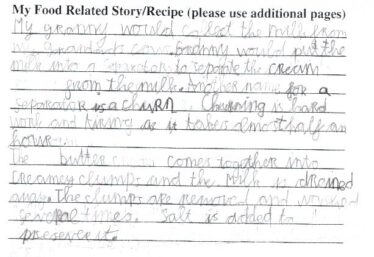 My Food Related Story/Recipe (please use additional pages)
My granny would collect the milk from
my grandads cows. Granny would put the
milk into a separator to separate the cream
from the milk. Another name for a
separator is a churn Churning is hard
work and tiring as it takes almost half an
hour.
The butter comes together into
creamey clumps and the milk is drained
away. The clumps are removed and
several times. Salt is added to
preserve it.